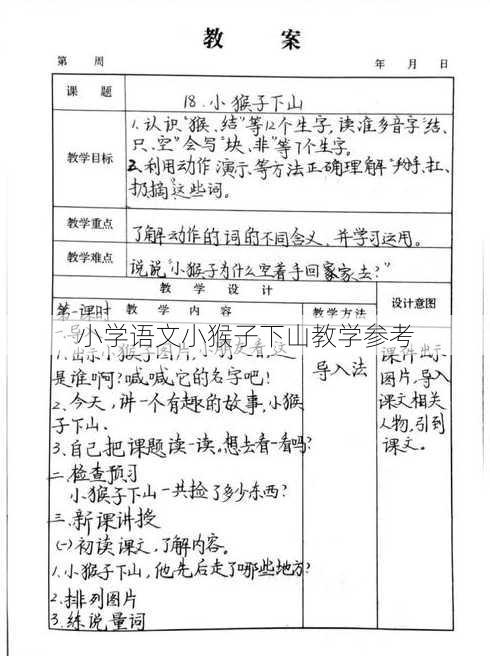 教 案
第 周 年 月 日
课 题
18.小猴子下山
教学目标
1.认识“猴、结”等12个生字,读准多音字“结、
只、空”会写“块、非”等7个生字。
2.利用动作演示等方法正确理解“掰、扛、
扔摘”这些词。
教学重点
了解动作的词的不同含义,并学习运用。
教学难点
说说“小猴子为什么空着手回家去?”
教 学 设 计
设计意图
第一课时 教 学 内 容
教学方法
小学语文小猴子下山教学参考
一、导
1.出示小猴子图片,小朋友看,这
是谁啊?喊喊它的名字吧!
2、今天,讲一个有趣的故事,小猴
子下山、
3、自己把课题读一读。想去看一看吗?
导入法
课件出示
图片,导入
课文相关
人物,引到
课文。
二、检查预习
小猴子下山一共捡了多少东西?
三、新课讲授
(一)初读课文,了解内容。
1.小猴子下山,他先后走了哪些地方?
2.排列图片
3.练说量词